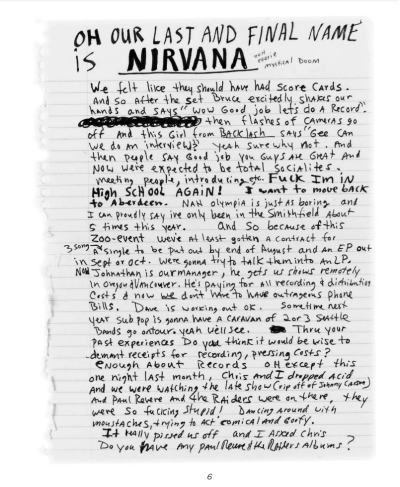 OH OUR LAST AND FINAL NAME
iS NIRVANA
eerie
musical DOOM
We felt like they should have had Score Cards.
And so After the set Bruce excitedly shakes our
hands and SAYS "Wow Good job lets do A Record".
then flashes of cameras go
off And this Girl from BACKlash says "Gee Can
we do An interview? yeah sure why not. And
then people say Good job you Guys are Great And
Now were expected to be total socialites.
meeting people, introducing etc. Fuck Im iN
High SCHOOL AGAiN! I want to move back
to Aberdeen. NAH olympia is just As boring and
I can proudly say ive only been in the Smithfield About
5 times this year. And So because of this
Zoo-event weve At least gotten A contract for
3 song A single to be put out by end of August and An EP out
in Sept or oct. Were gonna try to talk them into An LP.
NOW Johnathan is our manager, he gets us shows remotely
in oregon & Vancouver. He's paying for All recording & distribution
Costs & now we dont have to have outrageous phone
Bills. Dave is working out ok. Sometime next
year Sub pop is gonna have A CARAVAN of 2 or 3 Seattle
Bands go on tour. yeah well see. Thru your
past experiences Do you think it would be wise to
demand receipts for recording, pressing Costs?
enough About Records OH except this
one night last month, Chris and I dropped Acid
And we were watching the late show (rip off of Johnny Carson)
And Paul Revere and the RAiders were on there, they
were so fucking stupid! Dancing Around with
moustaches, trying to Act comical and Goofy.
It really pissed us off and I Asked Chris
Do you have Any Paul Revere & the Raiders Albums?
6